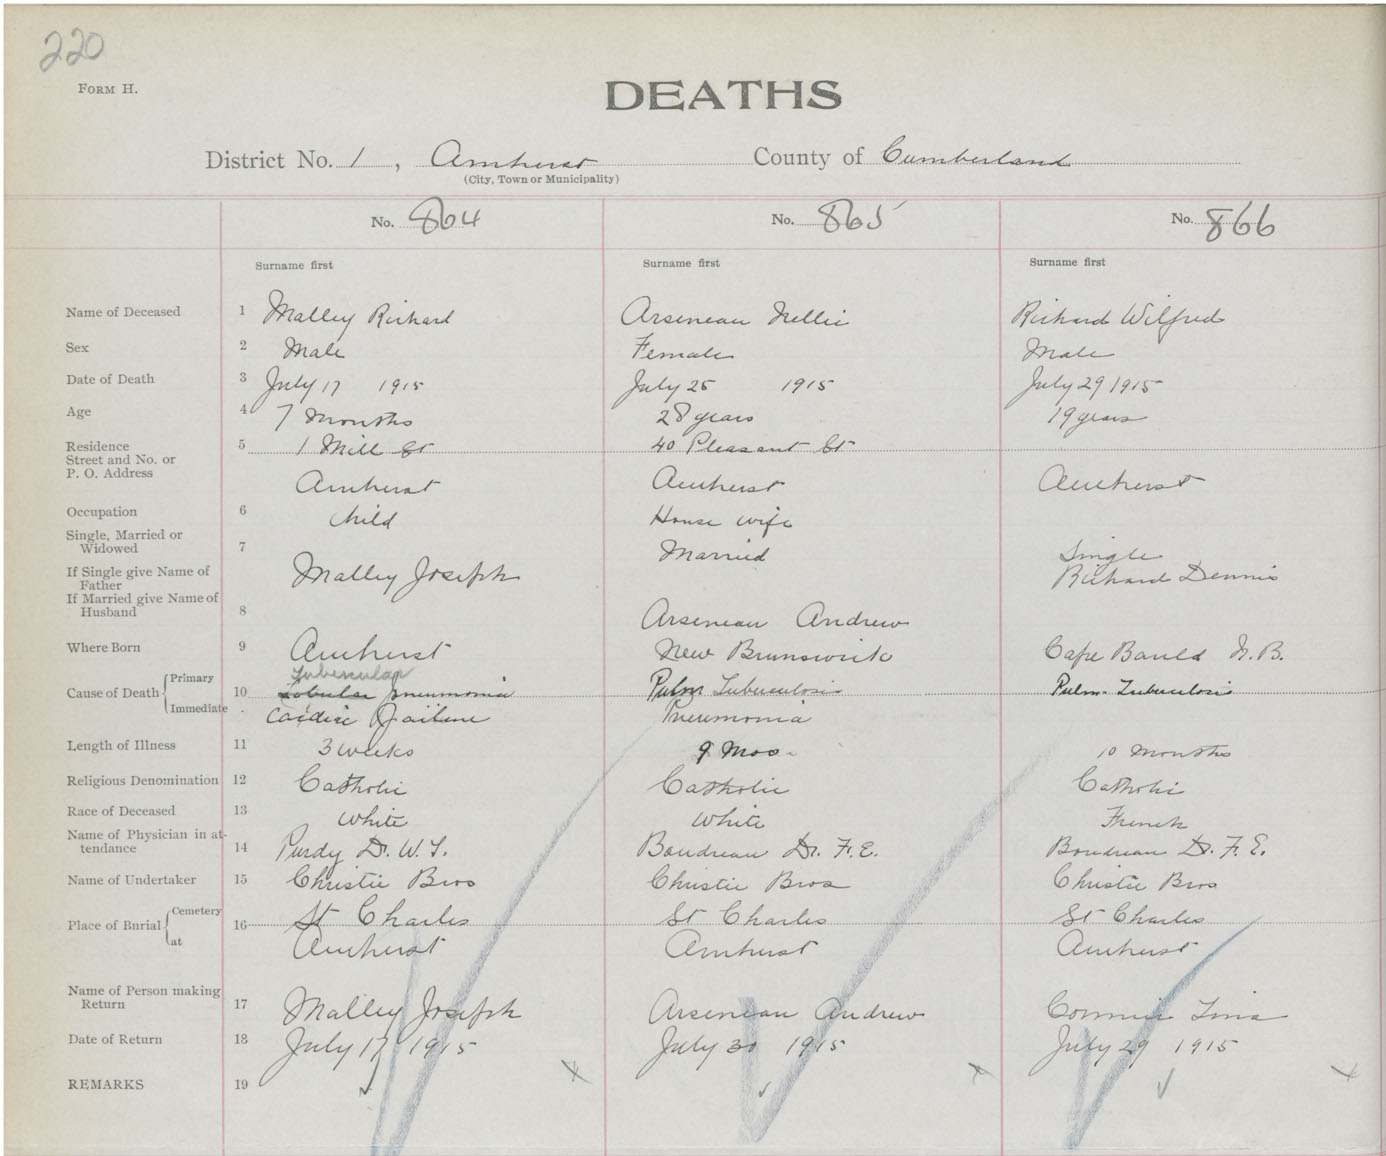 220
FORM H.
DEATHS
District No. 1 , Amherst County of Cumberland
(City, Town or Municipality)
No. 864 No. 865 No. 866
Surname first Surname first Surname first
Name of Deceased 1 Malley Richard Arseneau Nellie Richard Wilfred
Sex 2 Male Female Male
Date of Death 3 July 17 1915 July 25 1915 July 29 1915
Age 4 7 Months 28 years 19 years
Residence 5 1 Mill St 40 Pleasant St
Street and No. or
P. O. Address Amherst Amherst Amherst
Occupation 6 Child House wife
Single, Married or
Widowed 7 Married Single
If Single give Name of
Father Malley Joseph Richard Dennis
If Married give Name of
Husband 8 Arseneau Andrew
Where Born 9 Amherst New Brunswick Cape Bauld N.B.
Tubercular
Cause of Death { Primary 10 Lobular pneumonia Pulm Tuberculosis Pulm. Tuberculosis
Immediate Cardiac Failure Pneumonia
Length of Illness 11 3 weeks 9 Mos. 10 Months
Religious Denomination 12 Catholic Catholic Catholic
Race of Deceased 13 White White French
Name of Physician in at-
tendance 14 Purdy Dr. W. T. Boudreau Dr. F. E. Boudreau Dr. F. E.
Name of Undertaker 15 Christie Bros Christie Bros Christie Bros
Place of Burial { Cemetery 16 St Charles St Charles St Charles
at Amherst Amherst Amherst
Name of Person making
Return 17 Malley Joseph Arseneau Andrew Cormier Lina
Date of Return 18 July 17 1915 July 30 1915 July 29 1915
REMARKS 19